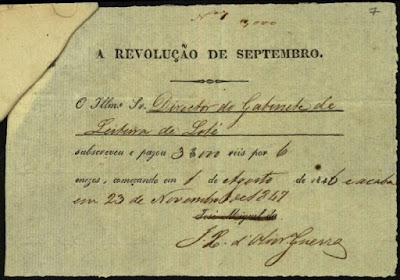 Nº 7
3,000
7
A REVOLUÇÃO DE SEPTEMBRO.
O Illmo Sr. Director do Gabinete de
Leitura de Lolé
subscreveu e pagou 3$000 reis por 6
mezes, começando em 1 de Agosto de 1846 e acaba
em 23 de Novembro de 1847
José Miguel
J. L. d'Oliv Guerra